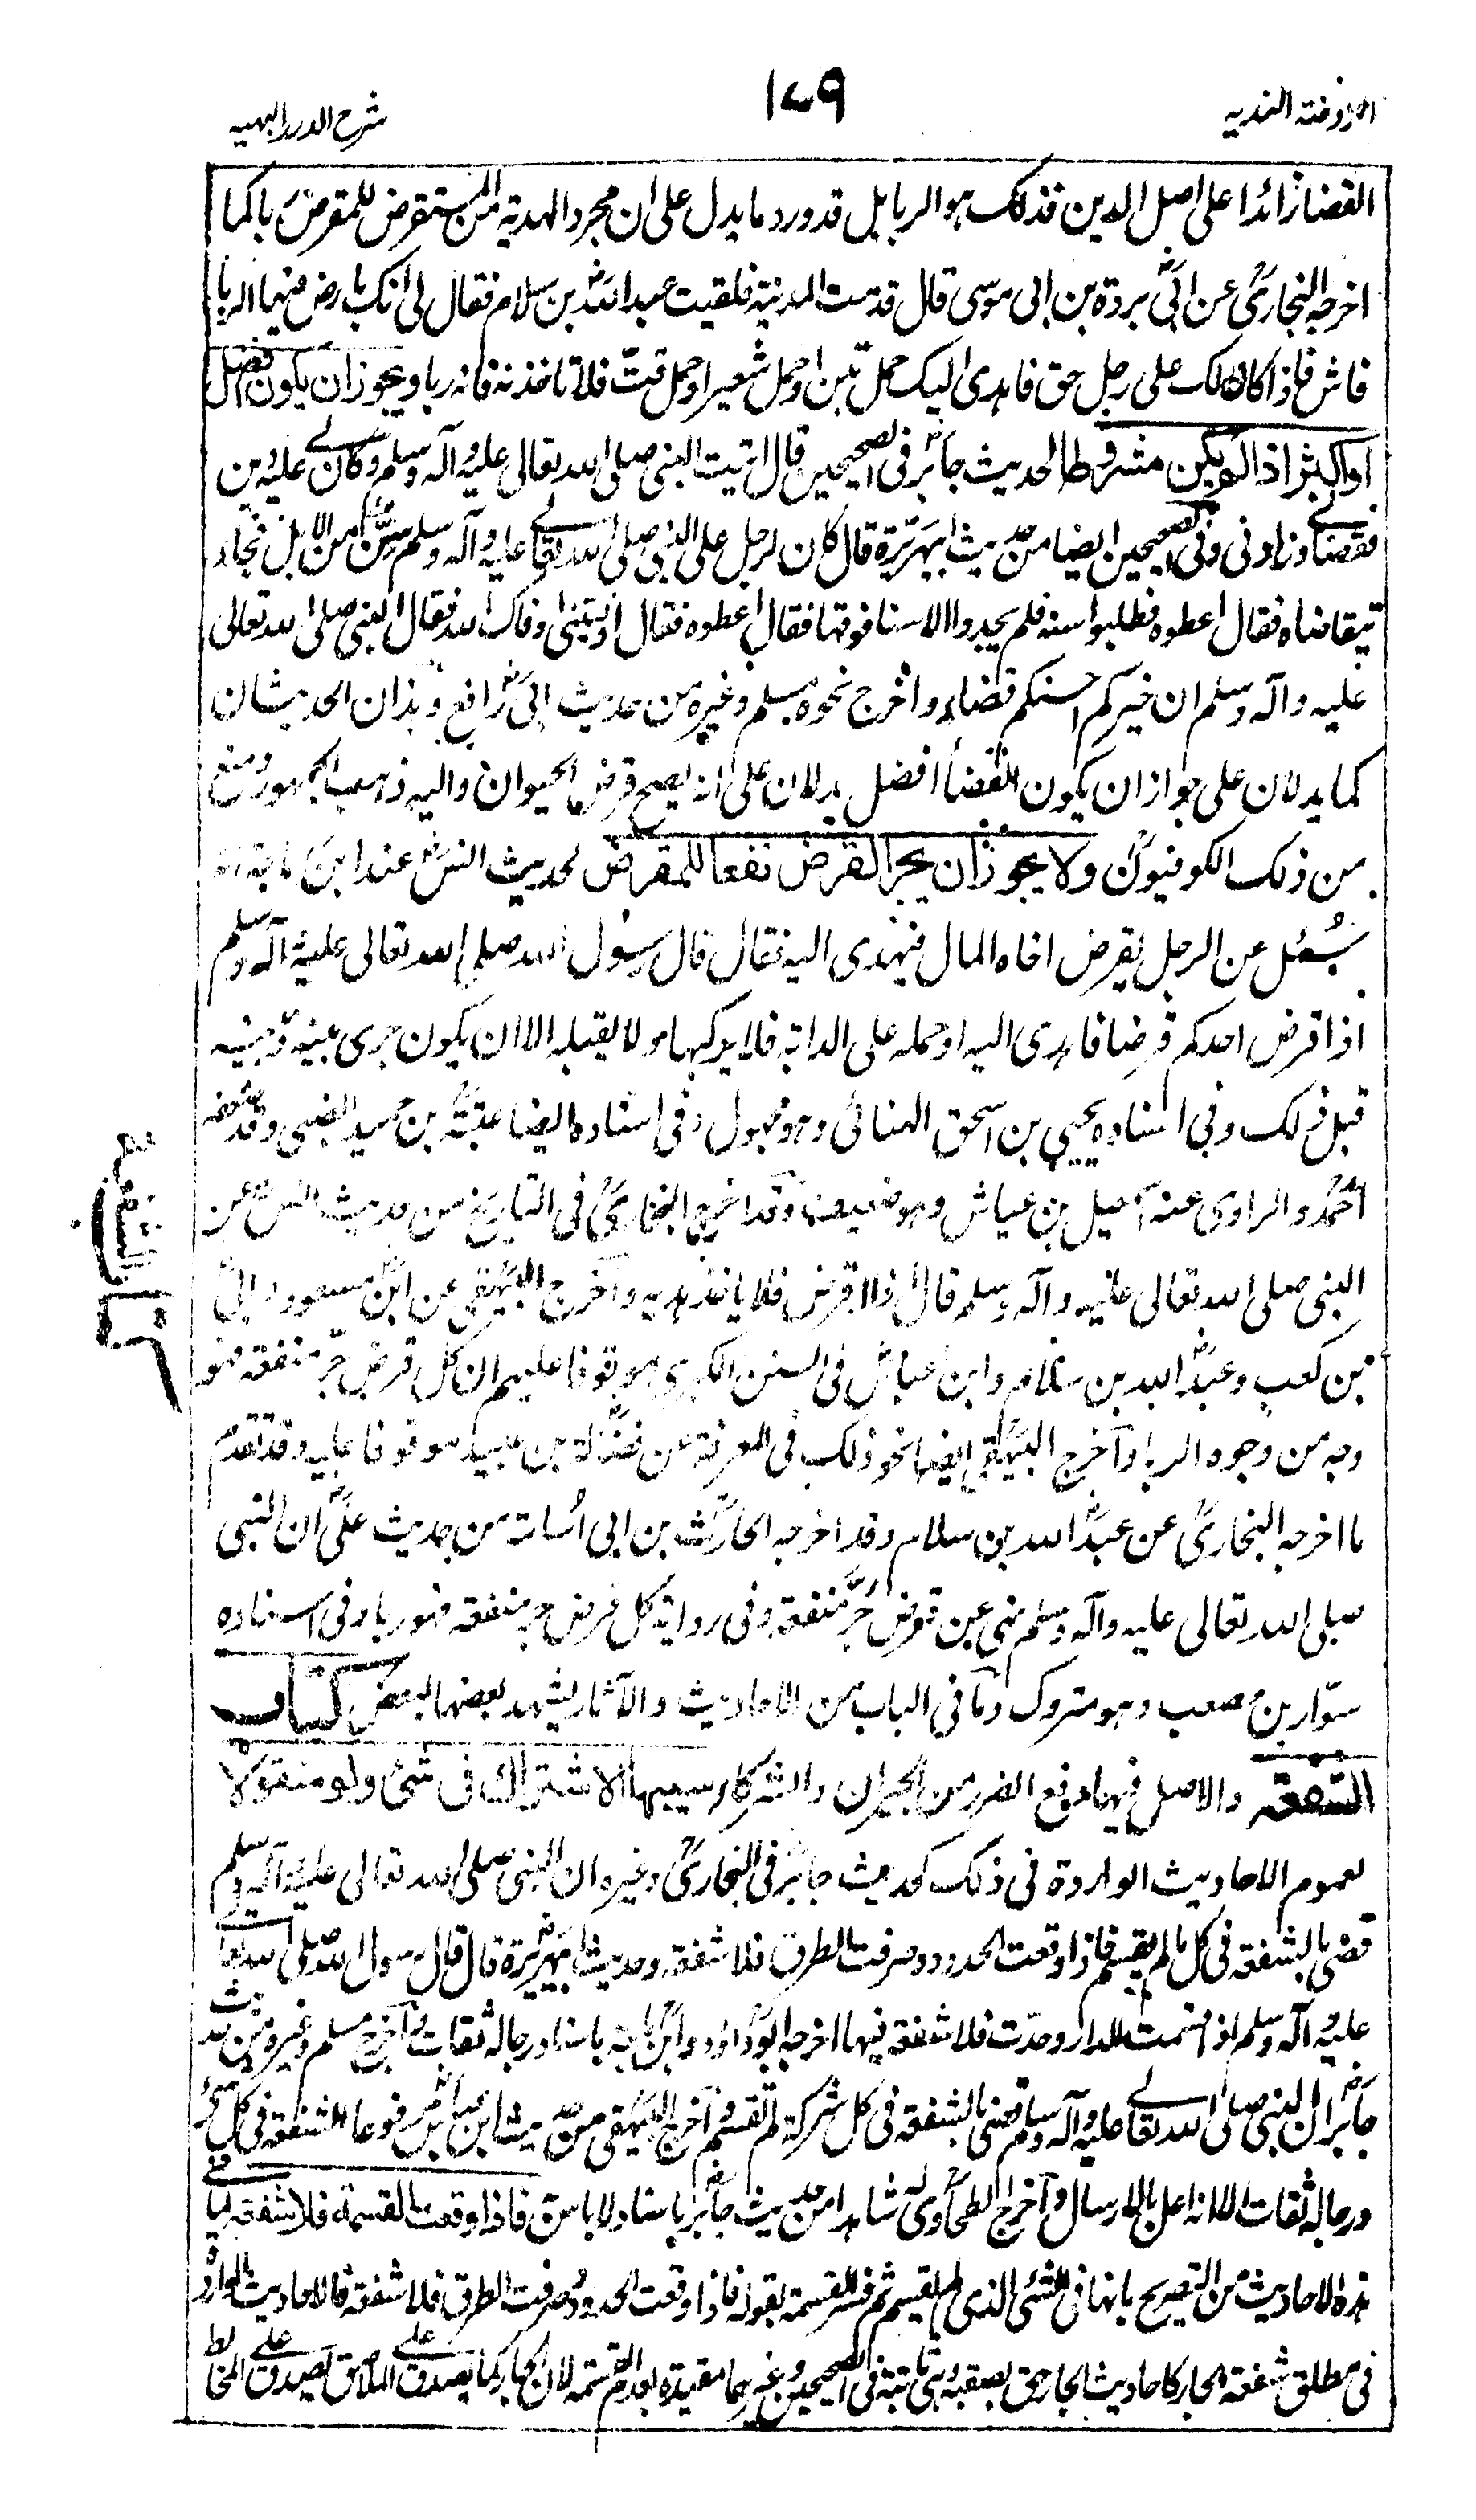 الروضة الندية
١٧٩
شرح الدرر البهية
القضا زائدا على اصل الدين فذلك هو الربا بل قد ورد ما يدل على ان مجرد الهدية من المستقرض للمقرض ربا كما
اخرجه البخاري عن ابي بردة بن ابي موسى قال قدمت المدينة فلقيت عبد الله بن سلام فقال لي انك بارض فيها الربا
فاش فاذا كان لك على رجل حق فاهدى اليك حمل تبن او حمل شعير او حمل قت فلا تاخذنه فانه ربا ويجوز ان يكون افضل
او اكثر اذا لم يكن مشروطا لحديث جابر في الصحيحين قال اتيت النبي صلى الله تعالى عليه وآله وسلم وكان لي عليه دين
فقضاني وزادني وفي الصحيحين ايضا من حديث ابي هريرة قال كان لرجل على النبي صلى الله تعالى عليه وآله وسلم سن من الابل فجاء
يتقاضاه فقال اعطوه فطلبوا سنه فلم يجدوا الا سنا فوقها فقال اعطوه فقال اوفيتني اوفاك الله فقال النبي صلى الله تعالى
عليه وآله وسلم ان خيركم احسنكم قضاء واخرج نحوه مسلم وغيره من حديث ابي رافع وهذان الحديثان
كما يدلان على جواز ان يكون القضا افضل يدلان على انه يصح قرض الحيوان واليه ذهب الجمهور ومنع
من ذلك الكوفيون ولا يجوز ان يجر القرض نفعا للمقرض لحديث انس عند ابن ماجة انه
سُئل عن الرجل يقرض اخاه المال فيهدى اليه فقال قال رسول الله صلى الله تعالى عليه وآله وسلم
اذا اقرض احدكم قرضا فاهدى اليه او حمله على الدابة فلا يركبها ولا يقبله الا ان يكون جرى بينه وبينه
قبل ذلك وفي اسناده يحيى بن اسحق الهنائي وهو مجهول وفي اسناده ايضا عتبة بن حميد الضبي وقد ضعفه
احمد والراوي عنه اسمعيل بن عياش وهو ضعيف وقد اخرج البخاري في التاريخ من حديث انس عن
النبي صلى الله تعالى عليه وآله وسلم قال اذا اقرض فلا ياخذ هدية واخرج البيهقي عن ابن مسعود وابي
بن كعب وعبد الله بن سلام وابن عباس في السنن الكبرى موقوفا عليهم ان كل قرض جر منفعة فهو
وجه من وجوه الربا واخرج البيهقي ايضا نحو ذلك في المعرفة عن فضالة بن عبيد موقوفا عليه وقد تقدم
ما اخرجه البخاري عن عبد الله بن سلام وقد اخرجه الحارث بن ابي اسامة من حديث علي ان النبي
صلى الله تعالى عليه وآله وسلم نهى عن قرض جر منفعة وفي رواية كل قرض جر منفعة فهو ربا وفي اسناده
سوار بن مصعب وهو متروك وما في الباب من الاحاديث والآثار يشهد بعضها لبعض كتاب
الشفعة والاصل فيها دفع الضرر من الجيران والشركاء سببها الاشتراك في شئ ولو منقولا
لعموم الاحاديث الواردة في ذلك كحديث جابر في البخاري وغيره ان النبي صلى الله تعالى عليه وآله وسلم
قضى بالشفعة في كل ما لم يقسم فاذا وقعت الحدود وصرفت الطرق فلا شفعة وحديث ابي هريرة قال قال رسول الله صلى الله تعالى
عليه وآله وسلم اذا قسمت الدار وحدت فلا شفعة فيها اخرجه ابو داود وابن ماجة باسناد رجاله ثقات واخرج مسلم وغيره من حديث
جابر ان النبي صلى الله تعالى عليه وآله وسلم قضى بالشفعة في كل شركة لم تقسم واخرج البيهقي من حديث ابن عباس مرفوعا الشفعة في كل شئ
ورجاله ثقات الا انه اعل بالارسال واخرج الطحاوي له شاهدا من حديث جابر باسناد لا باس به فاذا وقعت القسمة فلا شفعة لما في
هذه الاحاديث من التصريح بانها في الشئ الذي لم يقسم ثم فسر القسمة بقوله فاذا وقعت الحدود وصرفت الطرق فلا شفعة فالاحاديث الواردة
في مطلق شفعة الجار كاحاديث الجار احق بصقبه وهي ثابتة في الصحيحين وغيرهما مقيدة بعدم القسمة لان الجار كما يصدق على الملاصق يصدق على المخالط
كتاب الشفعة